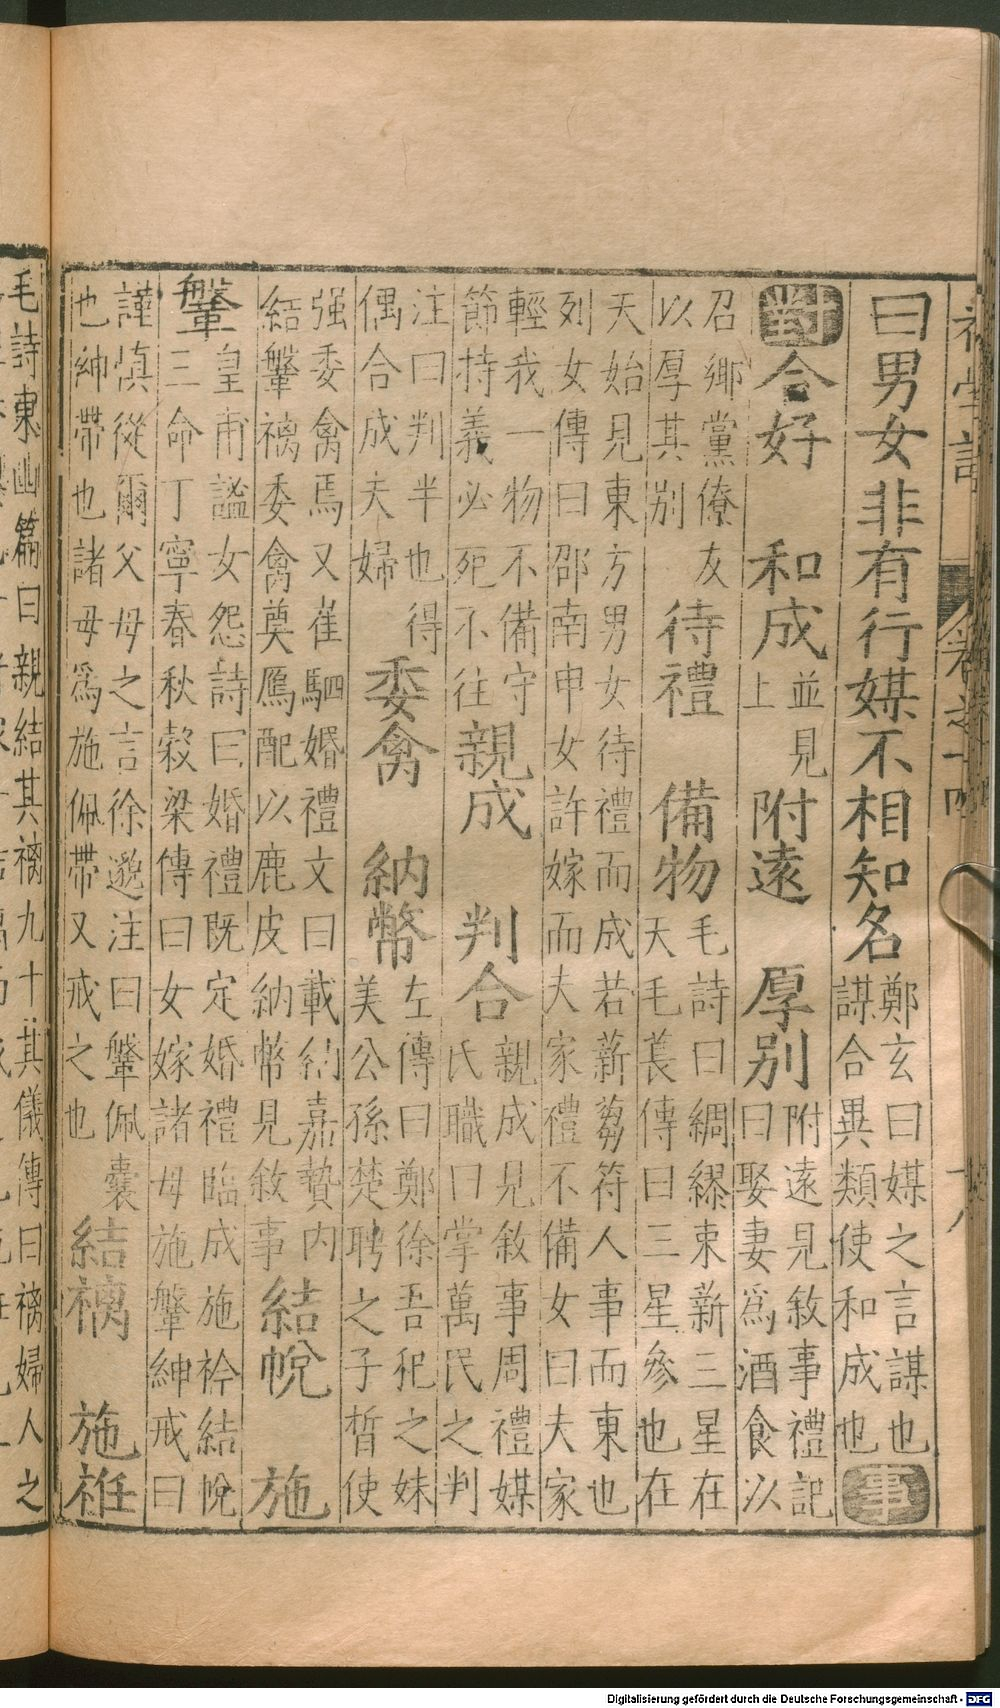 初學記 卷之十四 十八
曰男女非有行媒不相知名鄭玄曰媒之言謀也謀合異類使和成也事
對合好 和成並見上 附遠 厚别附遠見敘事禮記曰娶妻爲酒食以
召鄉黨僚友以厚其别 待禮 備物毛詩曰綢繆束新三星在天毛萇傳曰三星參也在
天始見東方男女待禮而成若薪芻符人事而東也列女傳曰邵南申女許嫁而夫家禮不備女曰夫家
輕我一物不備守節持義必死不往親成 判合親成見敘事周禮媒氏職曰掌萬民之判
注曰判半也得偶合成夫婦 委禽 納幣左傳曰鄭徐吾犯之妹美公孫楚聘之子晳使
强委禽焉又崔駰婚禮文曰載結嘉贄内結鞶褵委禽奠鴈配以鹿皮納幣見敘事結帨 施
鞶皇甫謐女怨詩曰婚禮既定婚禮臨成施衿結帨三命丁寧春秋穀梁傳曰女嫁諸母施鞶紳戒曰
謹慎從爾父母之言徐邈注曰鞶佩囊也紳帶也諸母爲施佩帶又戒之也結褵 施袵
毛詩東山篇曰親結其褵九十其儀傳曰褵婦人之
Digitalisierung gefördert durch die Deutsche Forschungsgemeinschaft - DFG